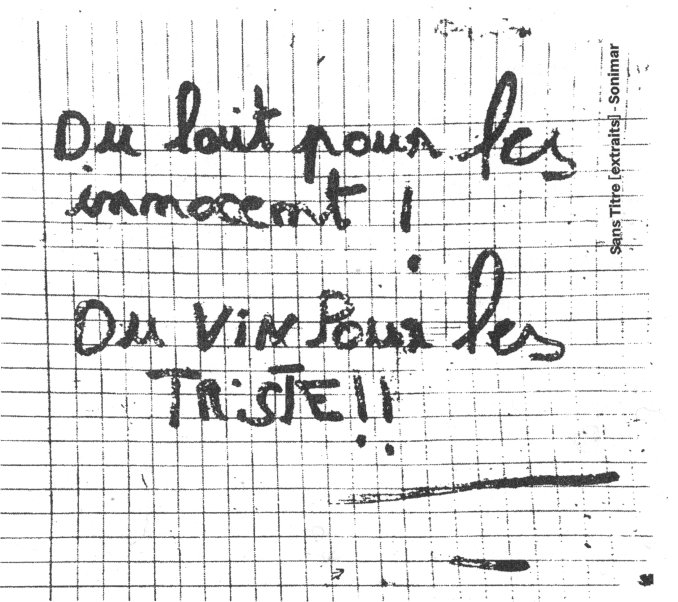 Du lait pour les
innocent !
Du ViN Pour les
TRiSTE!!
Sans Titre [extraits] - Sonimar